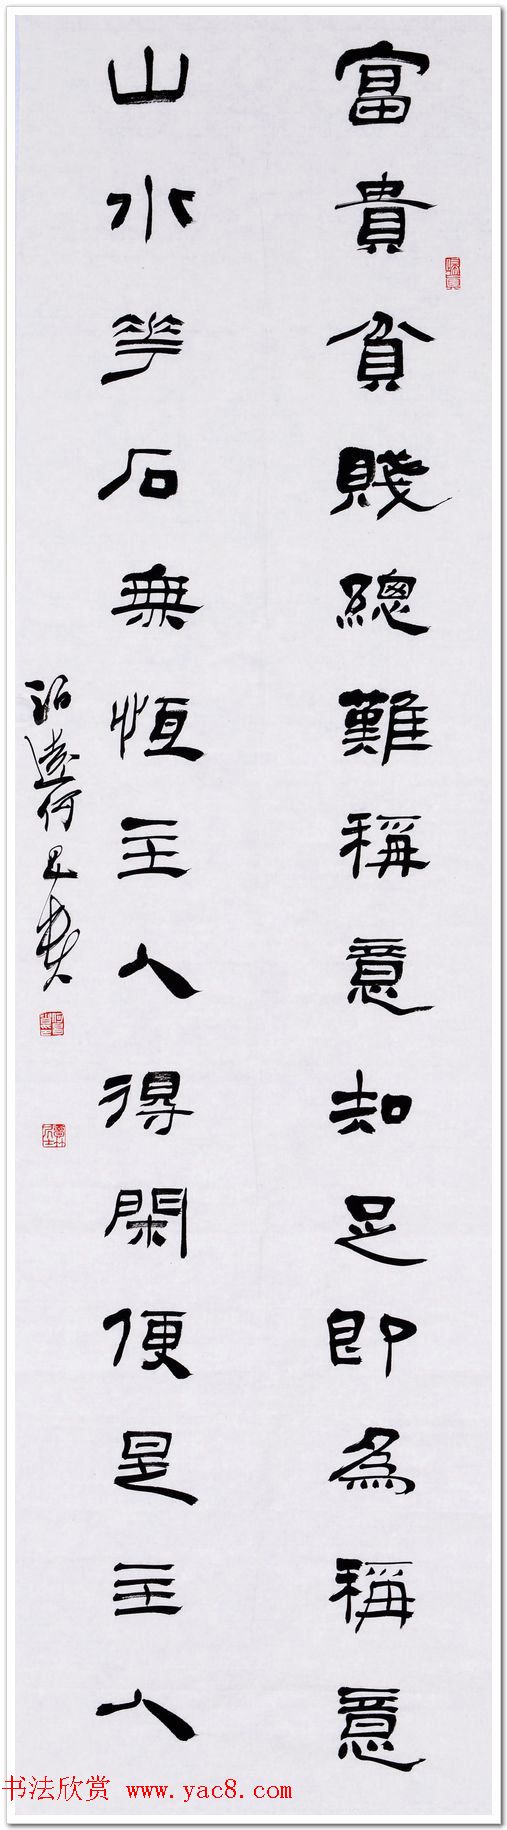 富貴貧賤總難稱意知足即為稱意
山水花石無恆主人得閑便是主人
书法欣赏 www.yac8.com